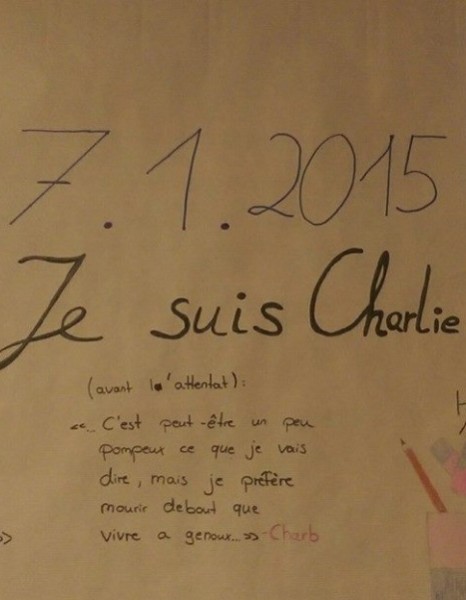 7.1.2015
Je suis Charlie
(avant l'attentat):
«... C'est peut-être un peu
pompeux ce que je vais
dire, mais je préfère
mourir debout que
vivre a genoux...»-Charb
»